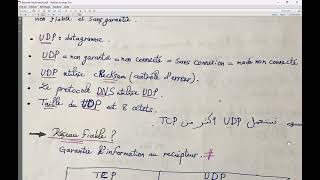 non Fiable et Sans garantie
• UDP : datagramme.
• UDP = non garantie = non connecté = Sans Connexion = mode non connecté
• UDP utilise checksum (contrôle d'erreur).
• Le protocole DNS utilise UDP.
• Taille du UDP est 8 octets.
نستعمل UDP أكثر من TCP
→ Réseau Fiable ?
Garantie l'information au recepteur. #
TCP UDP